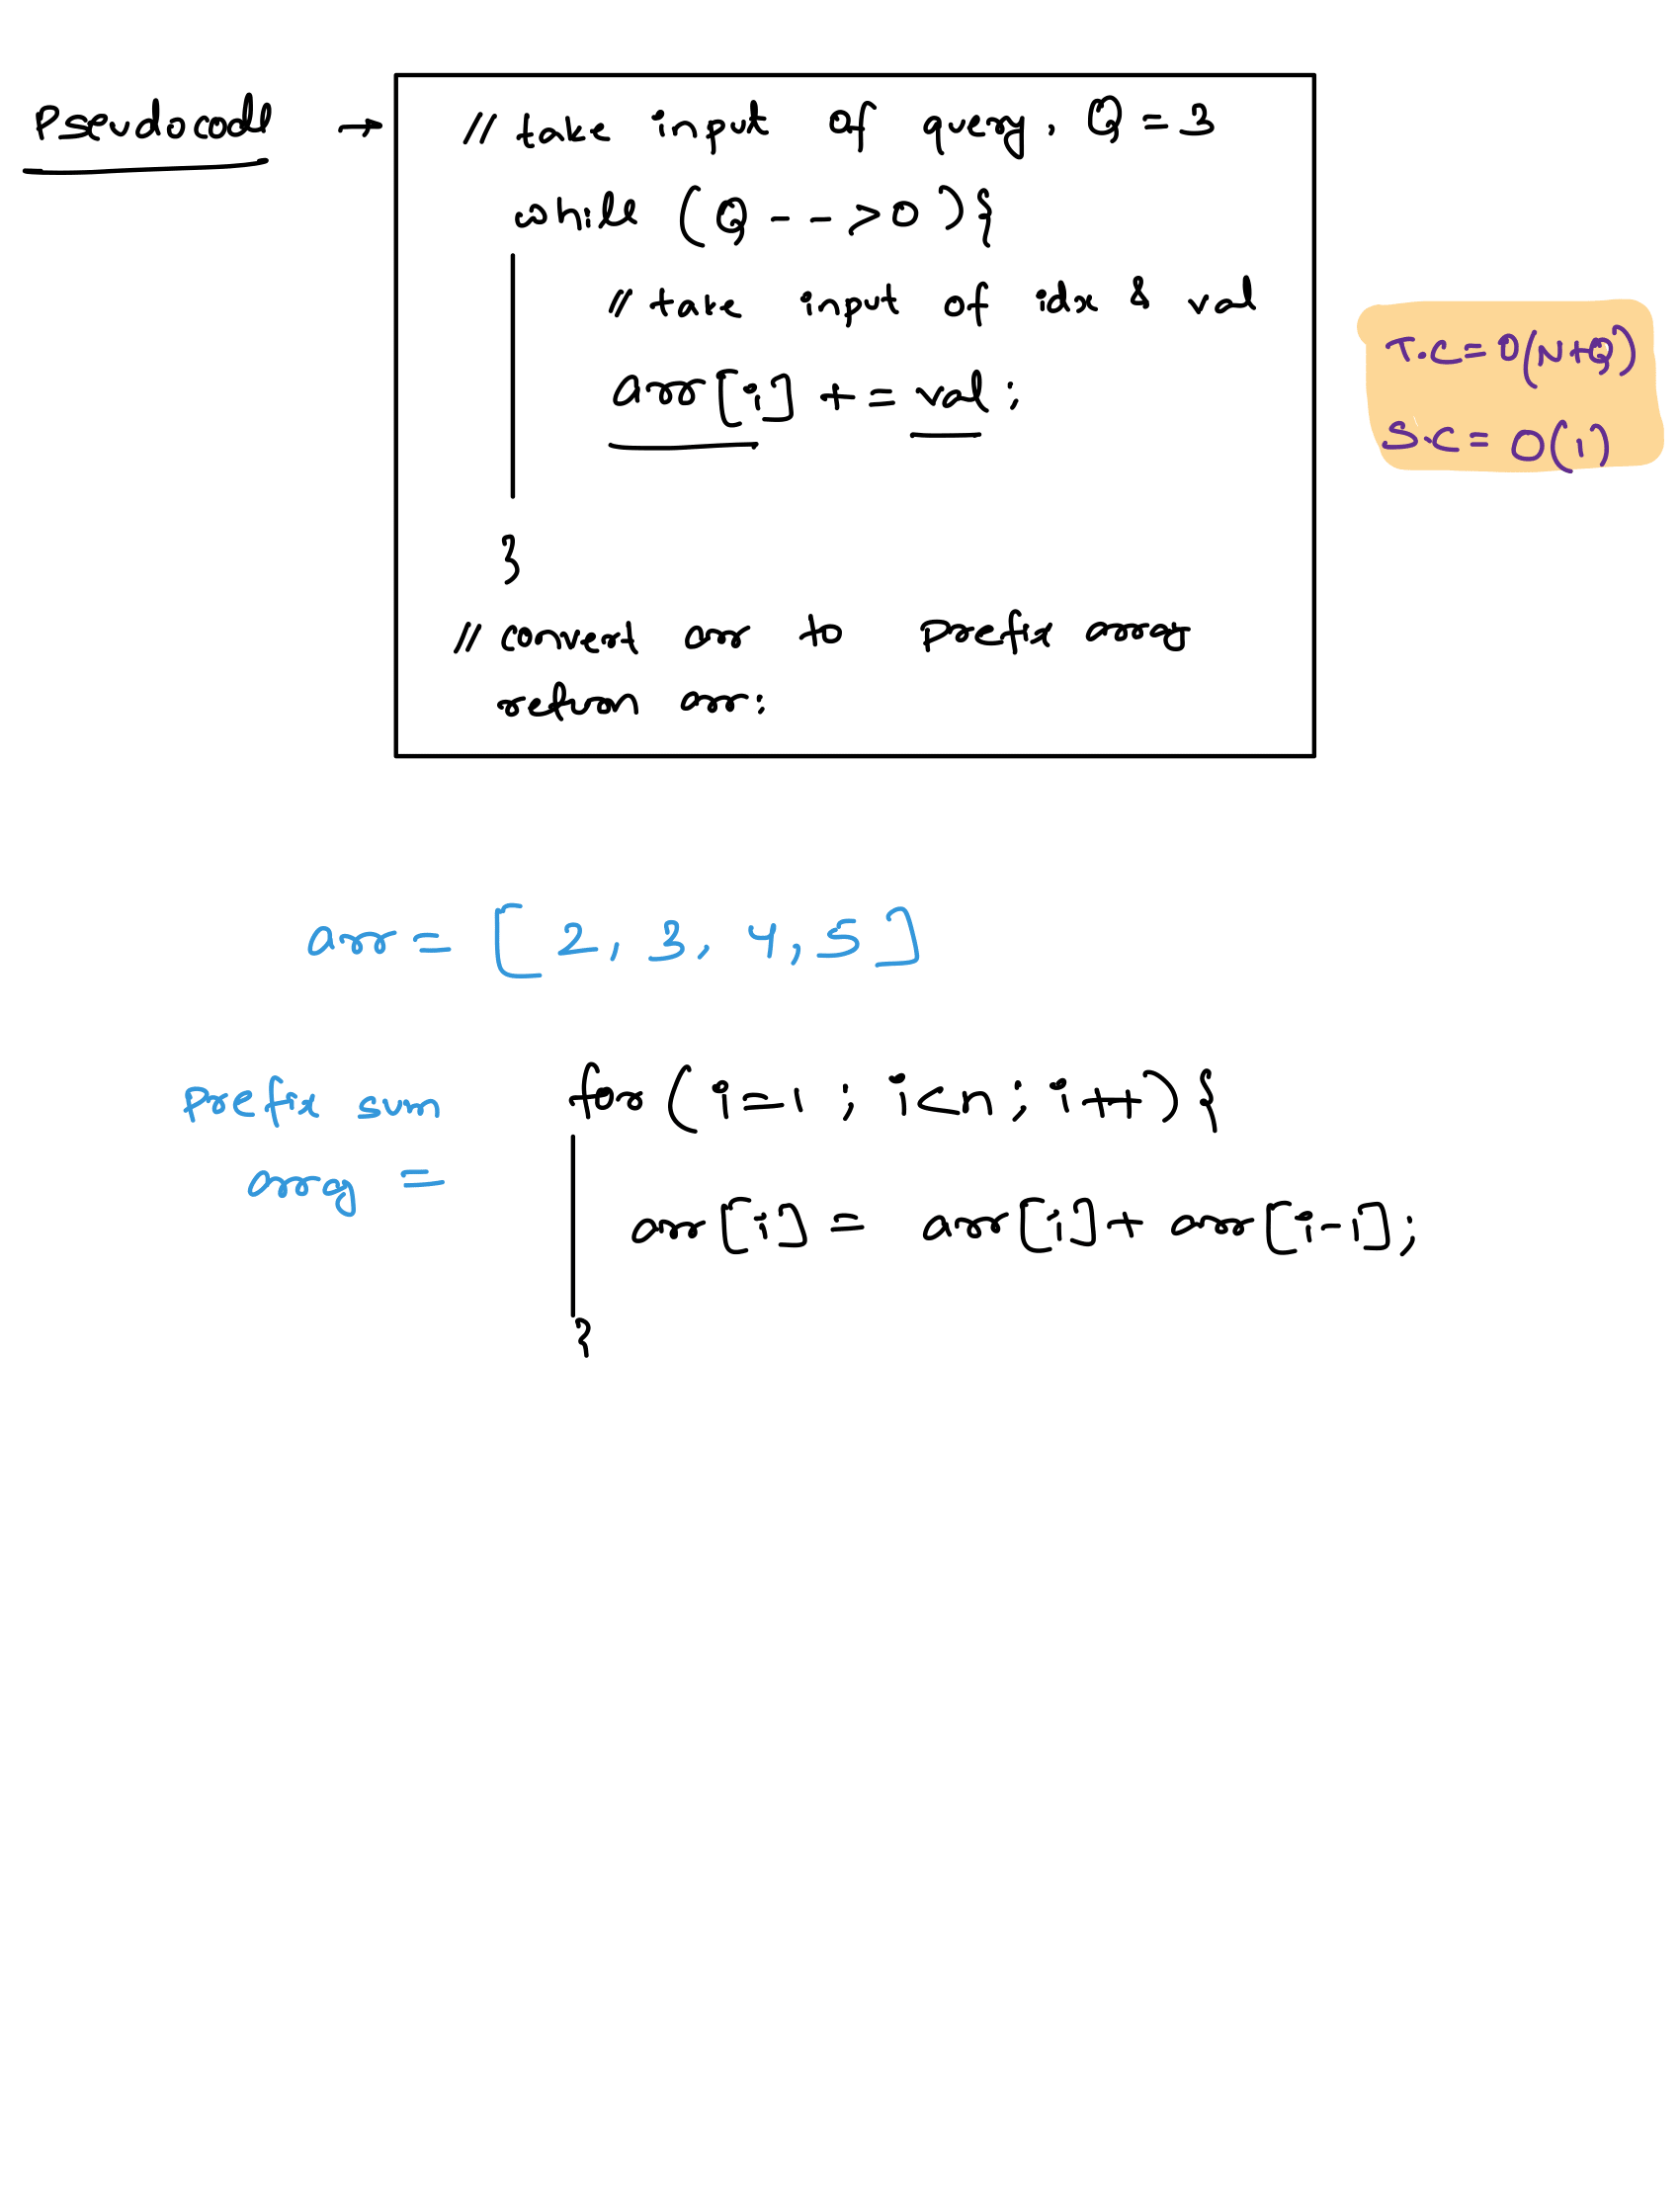 Pseudocode → // take input of query. Q = 3
while (Q-->0){
// take input of idx & val
arr[i] += val;
}
// convert arr to prefix array
return arr;
T.C = O(N+Q)
S.C = O(1)
arr = [2, 3, 4, 5]
Prefix sum array =
for (i=1 ; i<n ; i++){
arr[i] = arr[i] + arr[i-1];
}